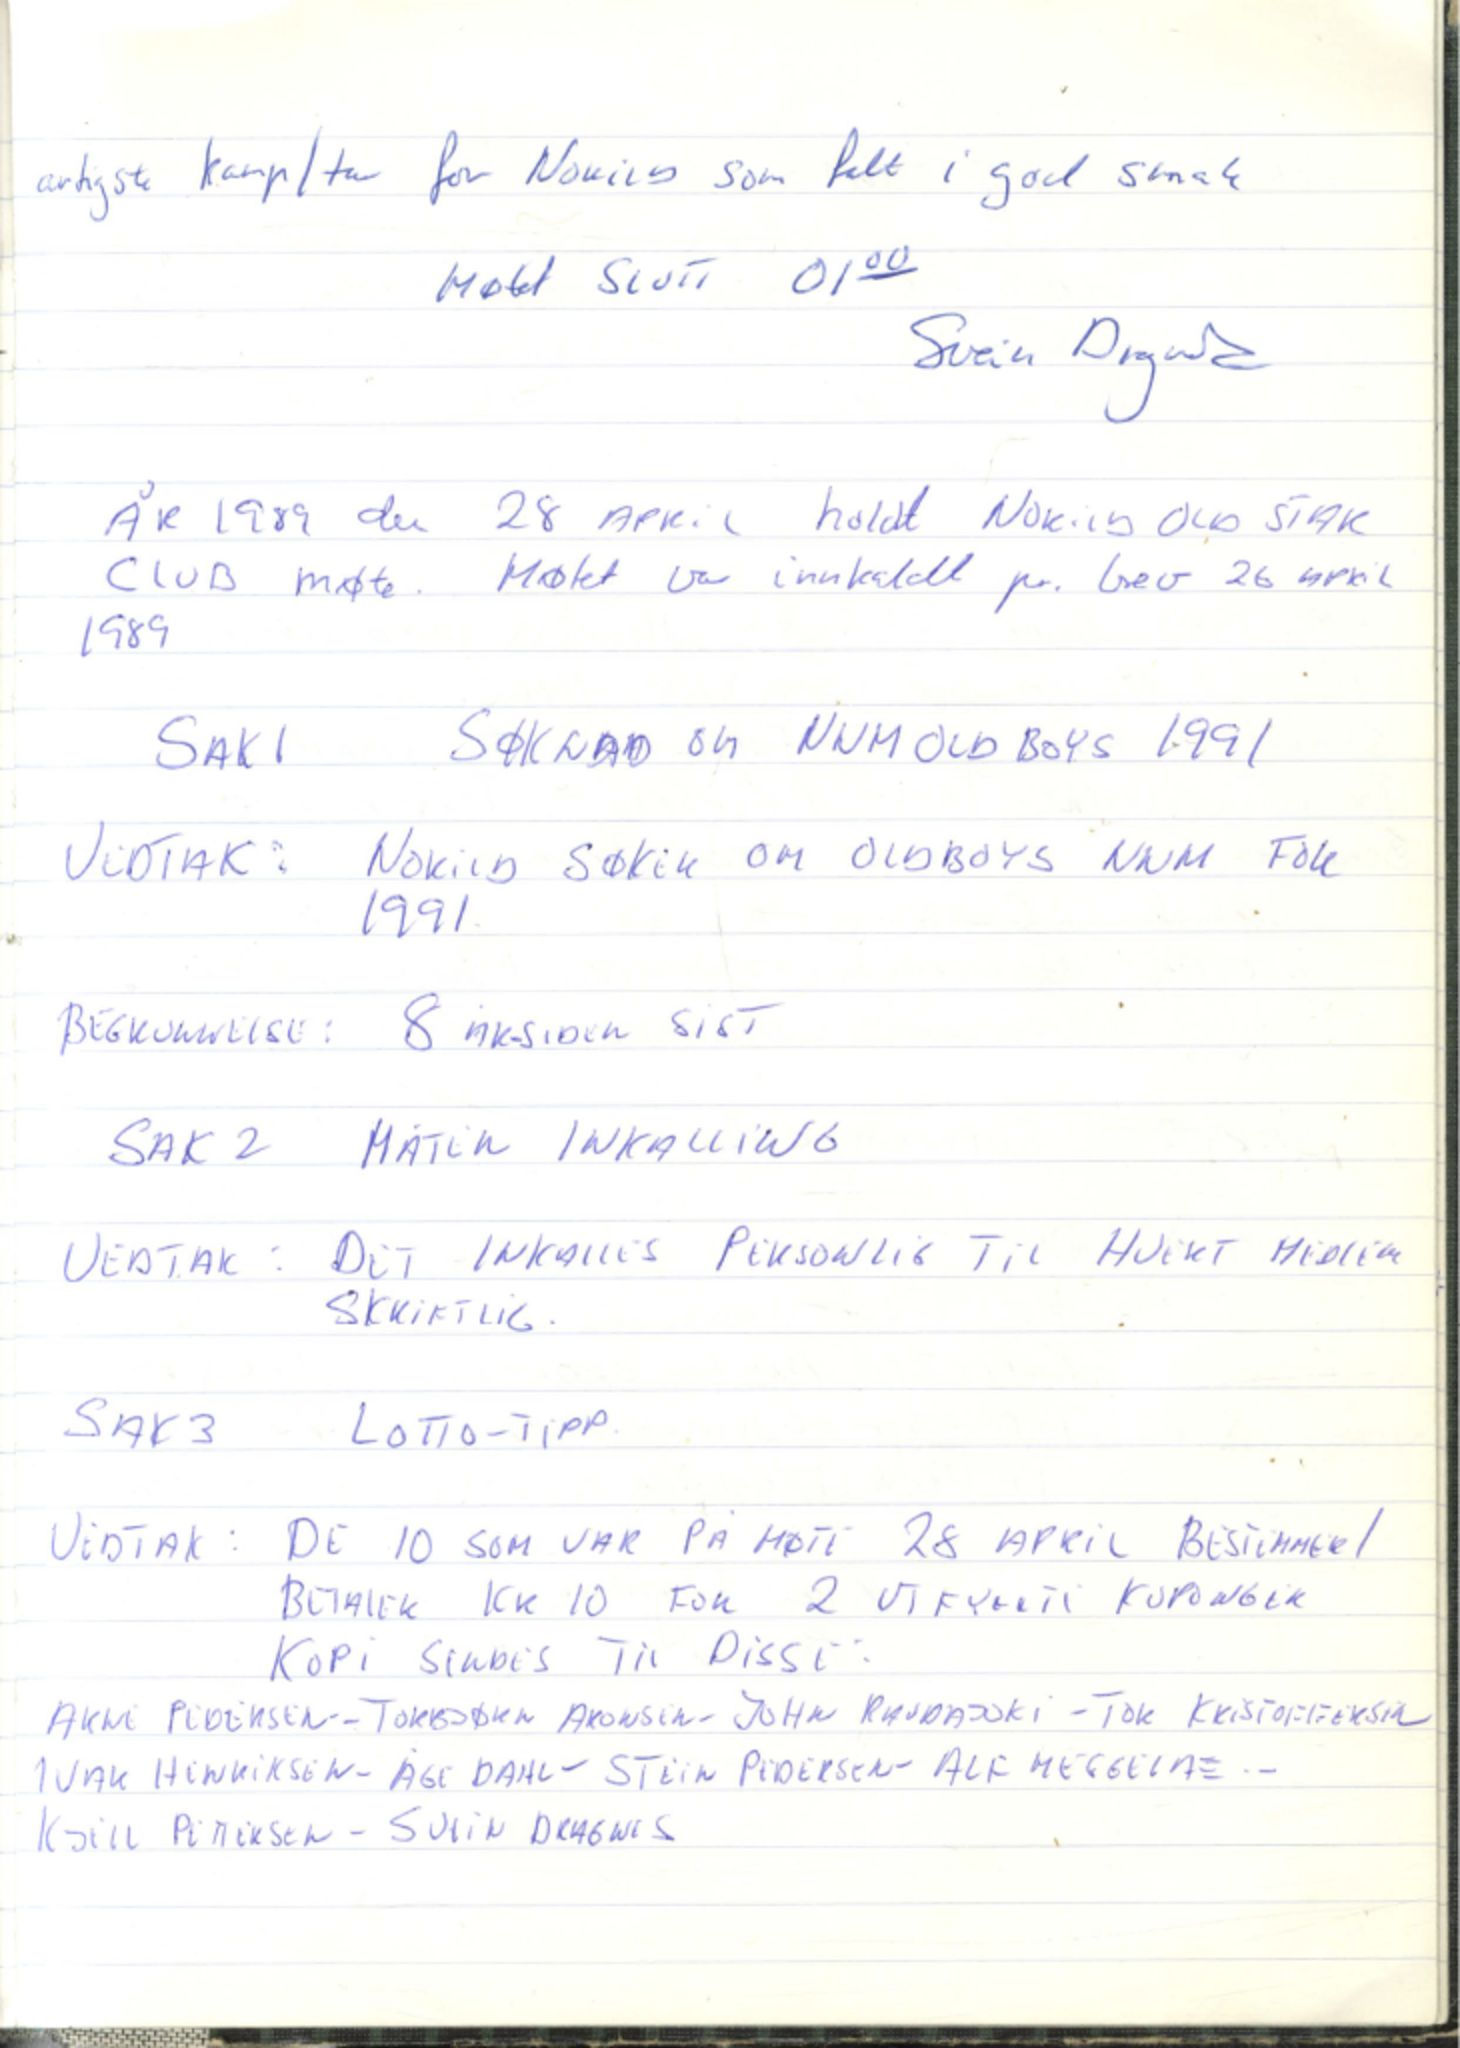 artigste kamp/tur for Norild som falt i god smak
Møtet SLUTT 01⁰⁰
Svein Dragnes
ÅR 1989 den 28 APRIL holdt NORILD OLD STAR
CLUB møte. Møtet var innkaldt pr. brev 26 APRIL
1989
SAK 1 SØKNAD OM NNM OLD BOYS 1991
VEDTAK: NORILD SØKER OM OLDBOYS NNM FOR
1991.
BEGRUNNELSE: 8 ÅR SIDEN SIST
SAK 2 MÅTEN INKALLING
VEDTAK: DET INKALLES PERSONLIG TIL HVERT MEDLEM
SKRIFTLIG.
SAK 3 LOTTO-TIPP.
VEDTAK: DE 10 SOM VAR PÅ MØTE 28 APRIL BESTEMMER/
BETALER KR 10 FOR 2 UTFYLTE KUPONGER
KOPI SENDES TIL DISSE:
ARNE PEDERSEN - TORBJØRN ARONSEN - JOHN RAUDAJOKI - TOR KRISTOFFERSEN
IVAR HENRIKSEN - ÅGE DAHL - STEIN PEDERSEN - ALF HEGGELAE -
KJELL PETTERSEN - SVEIN DRAGNES